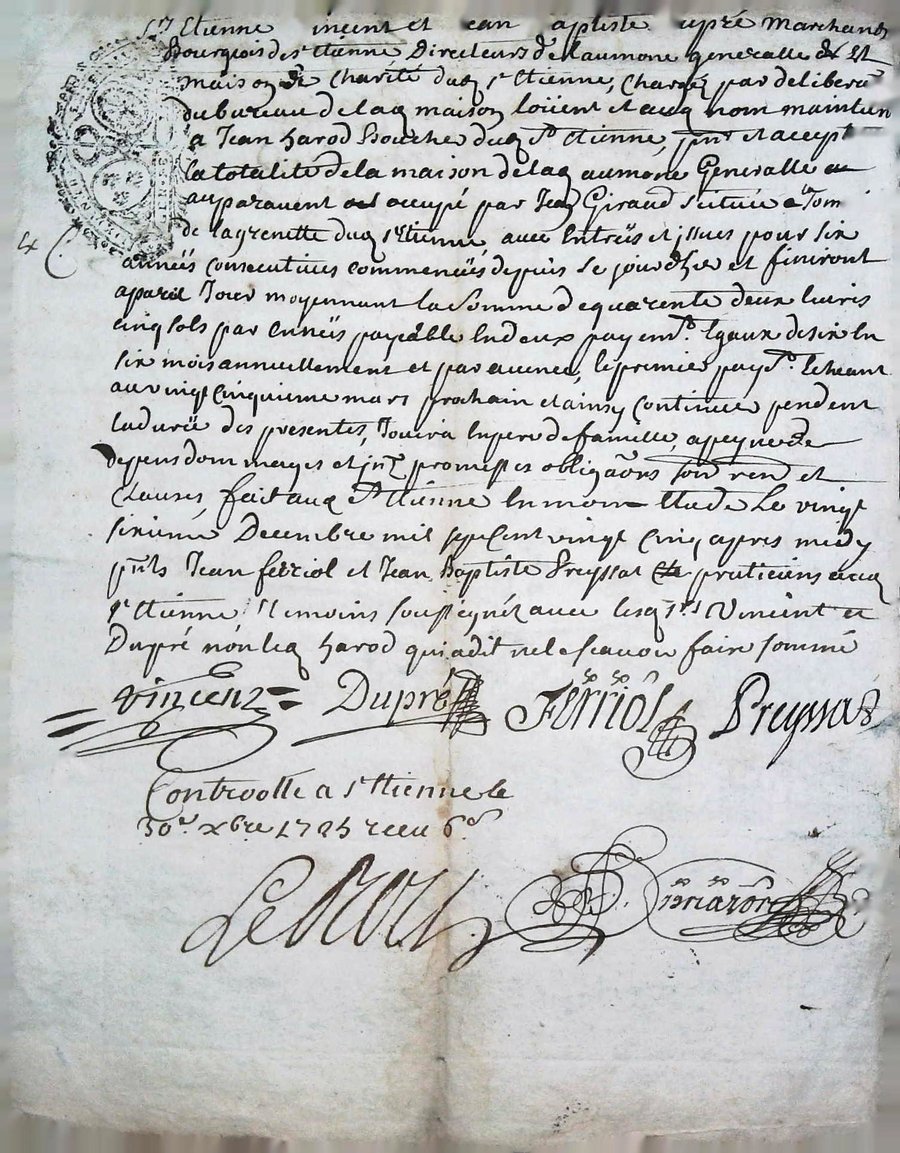 Etienne incent et ean aptiste upré Marchands
Bourgeois de st Etienne Directeurs de laumone generalle & et
maison de Charité dud st Etienne, Charges par delibera
du bureau de lad maison loüent et aud nom maintien
a Jean harod Boucher dud st Etienne, pnt et accept
la totalité de la maison de lad aumone Generalle
auparavent occupé par Jean Giraud scituée
de la grenette dud st Etienne avec Entreës et issues pour six
anneës consecutives commenceës depuis ce jourdhui et finiront
a pareil Jour moyennant la somme de quarente deux livres
cinq sols par anneës payeable En deux payemts Egaux de six En
six mois annuellement et par avence, le premier payt Echeant
au vingt cinquieme mars prochain et ainsy Continuer pendent
la dureë des presentes, Jouira En pere de famille, a peyne de
depens dommages et intz promesses obligaons soub ren et
Clauses, fait aud st Etienne En mon Etude Le vingt
sixieme Decembre mil sept Cent vingt Cinq apres midy
pnts Jean ferriol et Jean Baptiste Preyssat praticiens
st Etienne, temoins soussignéz avec lesd srs Vincent et
Dupré non led harod qui a dit ne le scavoir faire sommé
Vincent Dupré Ferriol Preyssat
Controollé a st Etienne le
30e xbre 1725 receu 6s